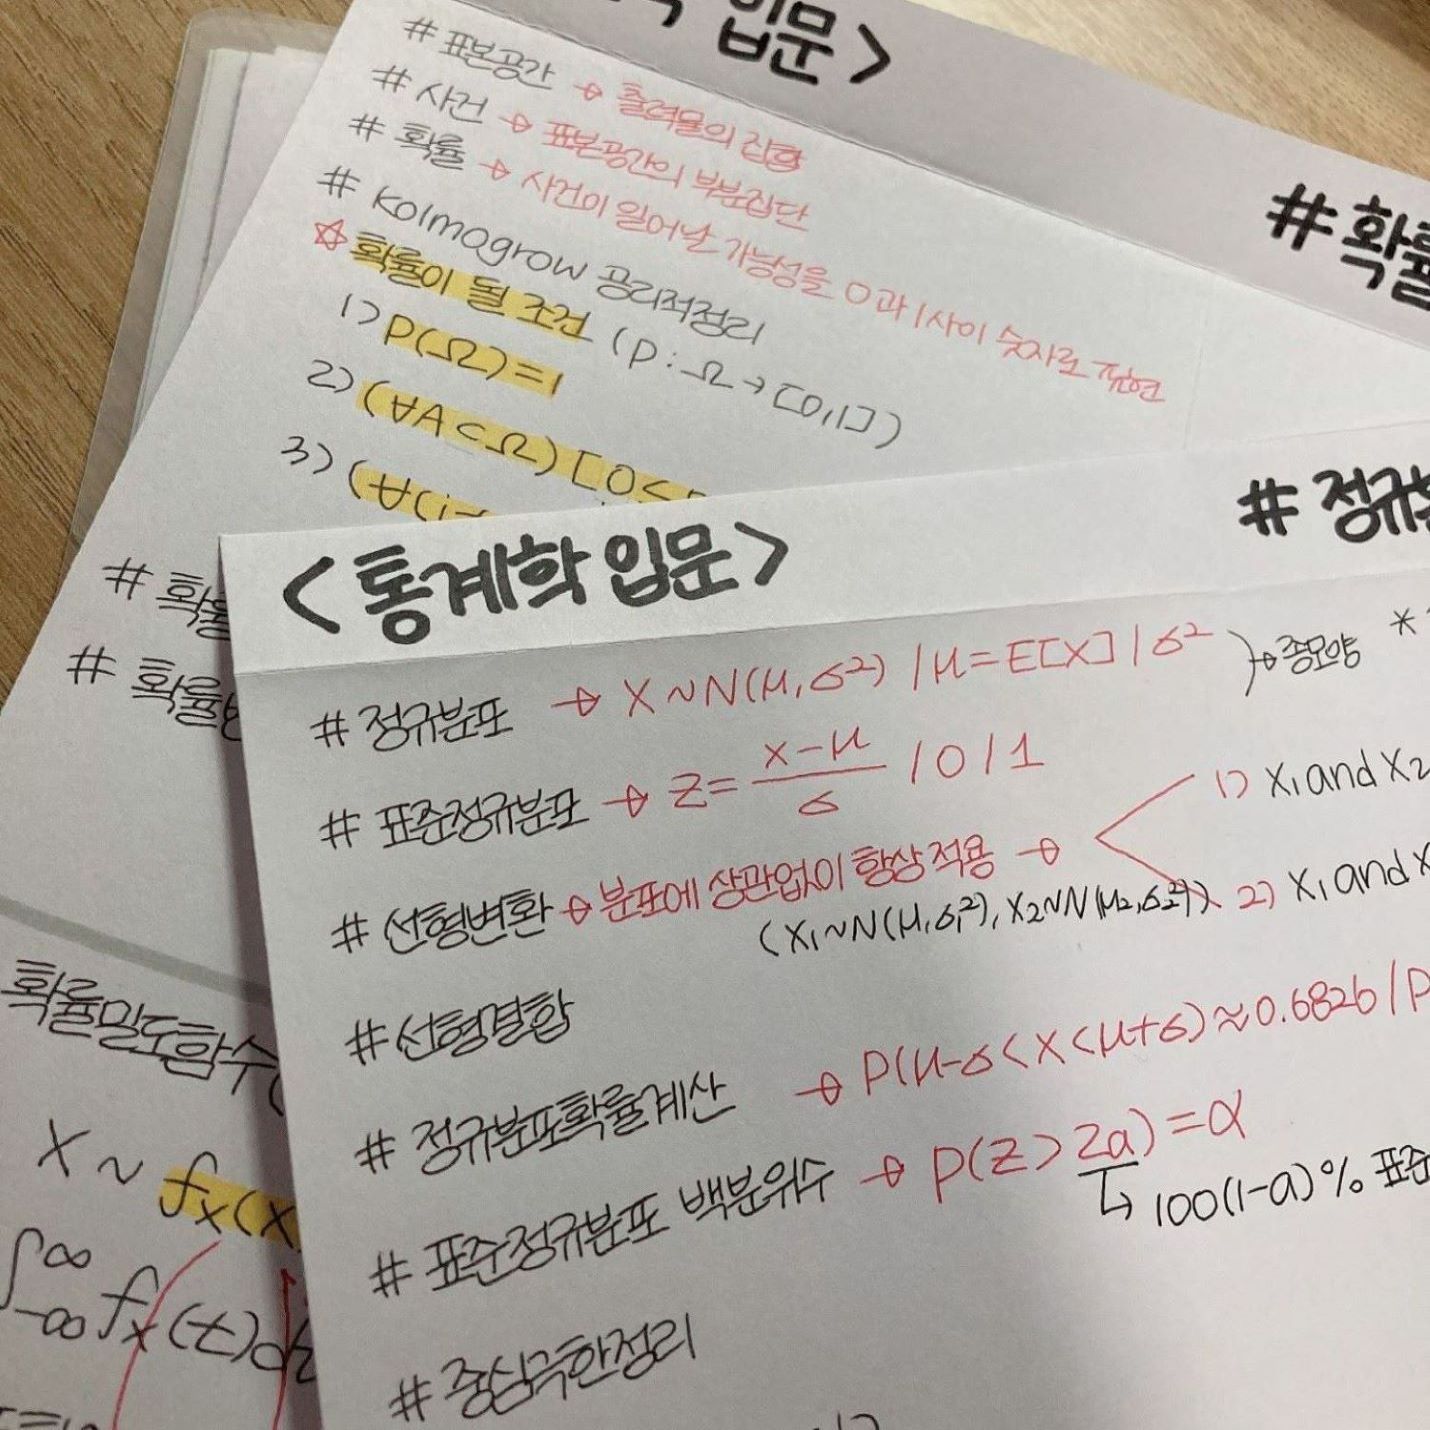 입문>
# 확률
# 표본공간 → 출력물의 집합
# 사건 → 표본공간의 부분집단
# 확률 → 사건이 일어날 가능성을 0과 1사이 숫자로 표현
# Kolmogrow 공리적정리
☆ 확률이 될 조건 (P: Ω → [0,1])
1) P(Ω)=1
2) (∀A⊂Ω) [0≤
3) (∀(i
# 확률
# 확률
확률밀도함수(
X ~ fx(x
∫∞-∞ fx(t)d
<통계학 입문>
# 정규
# 정규분포 → X~N(μ,σ²) / μ=E[X] / σ² → 종모양 *
# 표준정규분포 → Z= x-μ/σ / 0 / 1
# 선형변환 → 분포에 상관없이 항상 적용 → 1) X₁ and X₂
(X₁~N(μ₁,σ₁²), X₂~N(μ₂,σ₂²)) 2) X₁ and X
# 선형결합
# 정규분포확률계산 → P(μ-σ<X<μ+σ)≈0.6826 / P
# 표준정규분포 백분위수 → P(Z>Za)=α
↳ 100(1-a)% 표준
# 중심극한정리